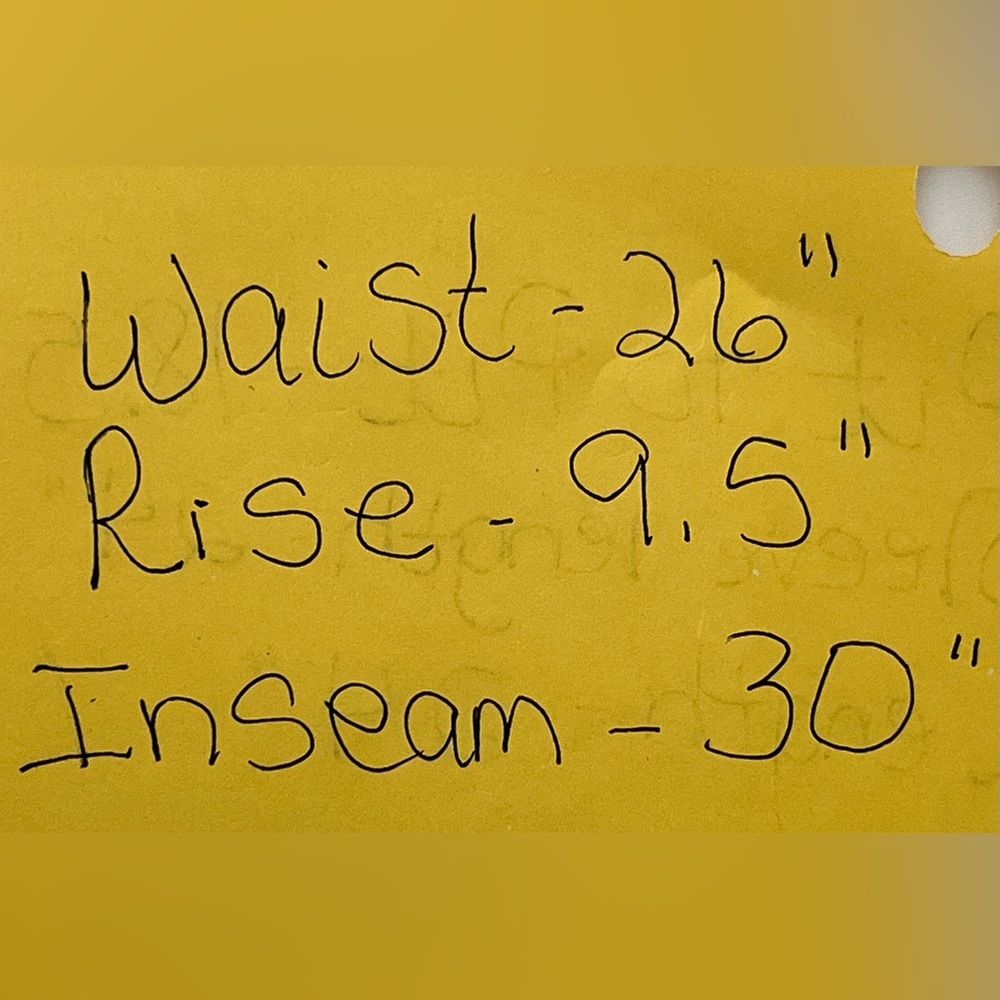 Waist - 26"
Rise - 9.5"
Inseam - 30"